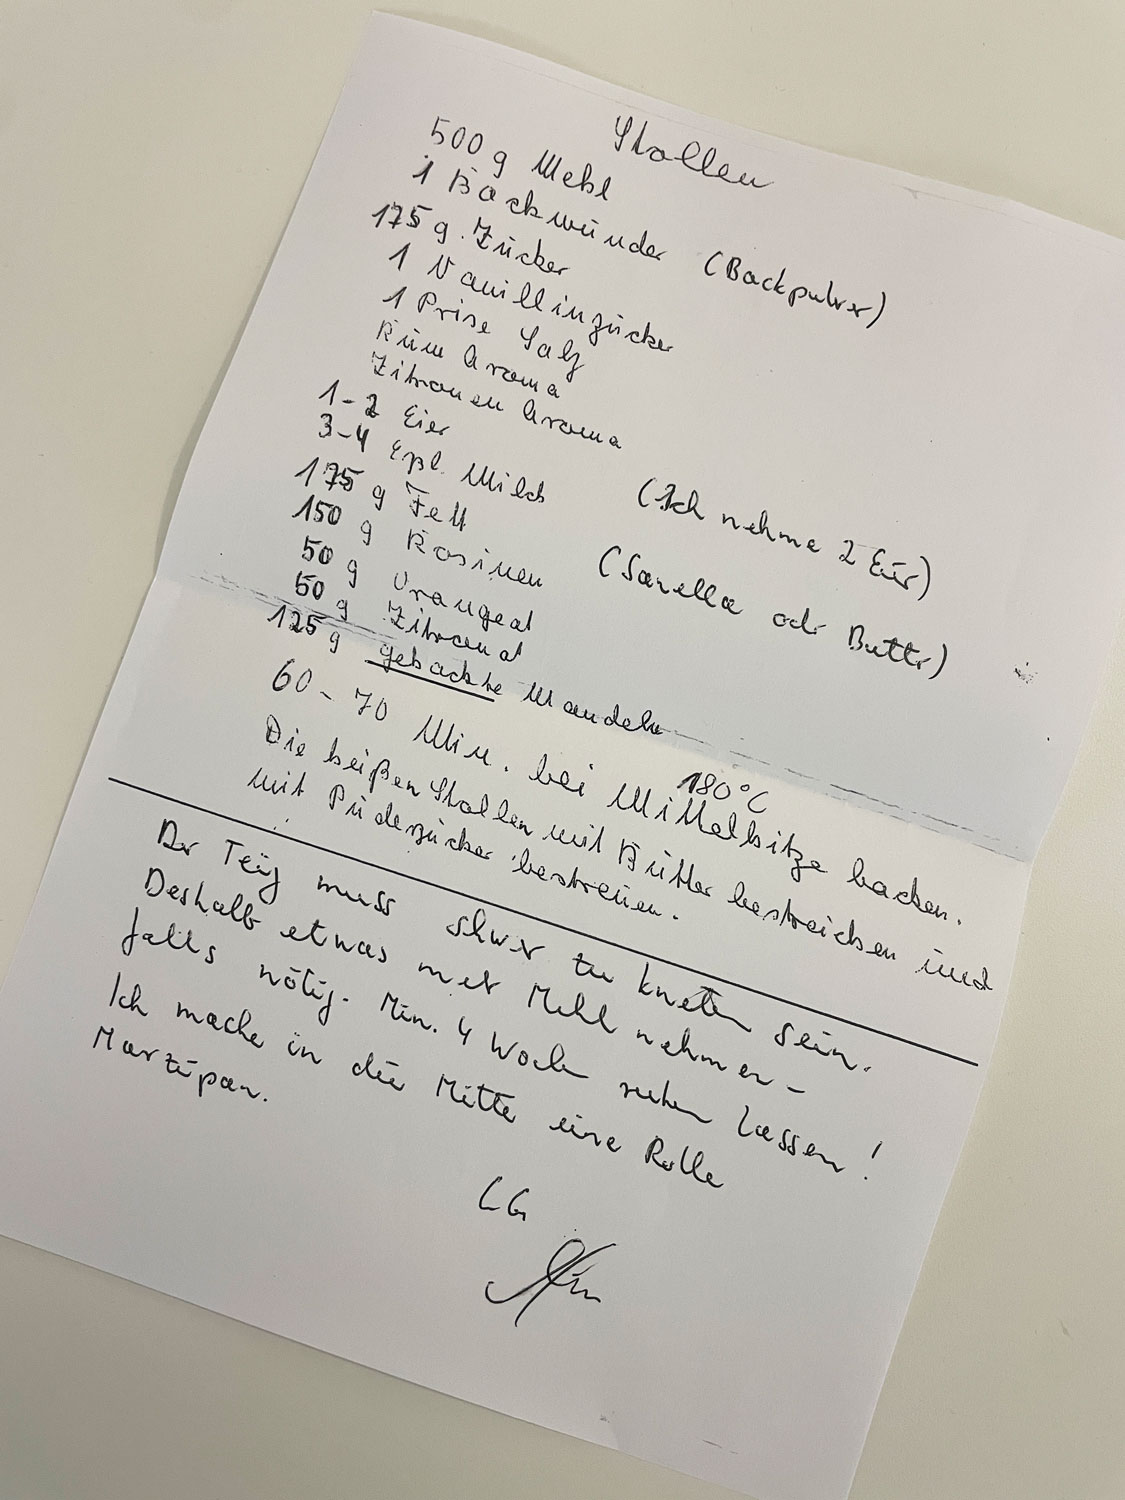 Stollen
500 g Mehl
1 Backwunder (Backpulver)
175 g Zucker
1 Vanillinzucker
1 Prise Salz
Rum Aroma
Zitronen Aroma
1-2 Eier (Ich nehme 2 Eier)
3-4 Eßl. Milch
175 g Fett (Sanella oder Butter)
150 g Rosinen
50 g Orangeat
50 g Zitronat
125 g gehackte Mandeln
180°C
60-70 Min. bei Mittelhitze backen.
Die heißen Stollen mit Butter bestreichen und
mit Puderzucker bestreuen.
Der Teig muss schwer zu kneten sein.
Deshalb etwas mehr Mehl nehmen -
falls nötig. Min. 4 Wochen ruhen lassen!
Ich mache in die Mitte eine Rolle
Marzipan.
LG